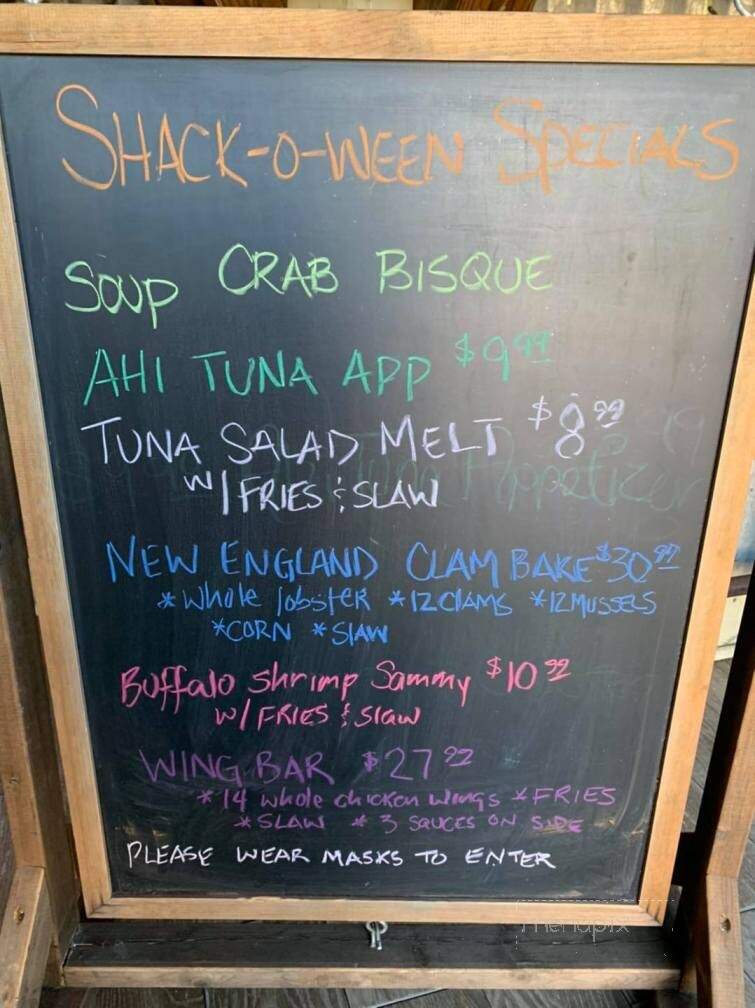 SHACK-O-WEEN SPECIALS
SOUP CRAB BISQUE
AHI TUNA APP $9.99
TUNA SALAD MELT $8.99
W/ FRIES & SLAW
Appetizer
NEW ENGLAND CLAM BAKE $30.99
* Whole lobster * 12 CLAMS * 12 MUSSELS
* CORN * SLAW
Buffalo shrimp Sammy $10.99
W/ FRIES & Slaw
WING BAR $27.99
* 14 whole chicken wings * FRIES
* SLAW * 3 SAUCES ON SIDE
PLEASE WEAR MASKS TO ENTER
menupix